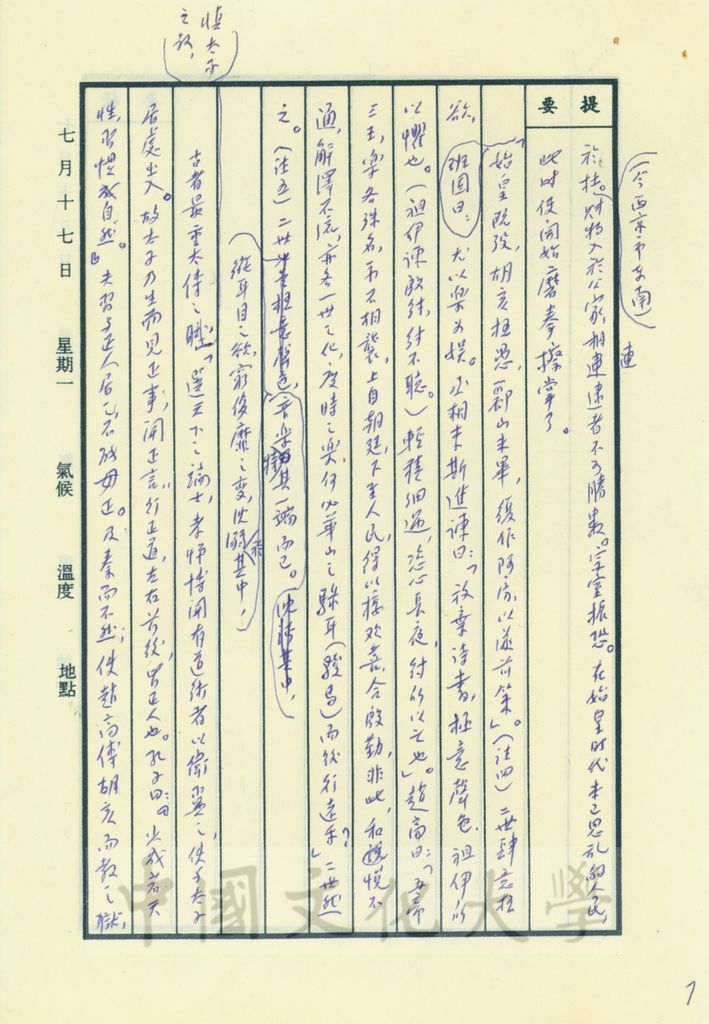 (今西京市東南)
提要
於杜。財物入於公家,相連逮者不可勝數。宗室振恐。在始皇時代未已思亂的人民,
連
此時便開始磨拳擦掌了。
「始皇既歿,胡亥極愚,酈山未畢,復作阿房,以遂前策」。(注四)二世肆意極
欲,
班固曰:
尤以樂為娛。丞相李斯進諫曰:「放棄詩書,極意聲色,祖伊所
以懼也。(祖伊諫殷紂,紂不聽。)輕積細過,恣心長夜,紂所以亡也」。趙高曰:「五帝
三王,樂各殊名,示不相襲,上自朝廷,下至人民,得以接歡喜,合殷勤,非此,和說不
通,解澤不流,亦各一世之化,度時之樂,何必華山之騄耳(駿馬)而後行遠乎?」二世然
之。(注五)二世極意聲色,音樂其一端而已。
沈溺其中,
縱耳目之欲,窮侈靡之變,沈溺於其中,
慎太子之教,
古者最重太傅之職,「選天下之端士,孝悌博聞有道術者以衛翼之,使與太子
居處出入。故太子乃生而見正事,聞正言,行正道,左右前後,皆正人也。孔子曰:少成若天
性,習慣成自然。」夫習與正人居之,不能毋正。及秦而不然,使趙高傅胡亥而教之獄,
七月十七日 星期一 氣候 溫度 地點
中國文化大學
7